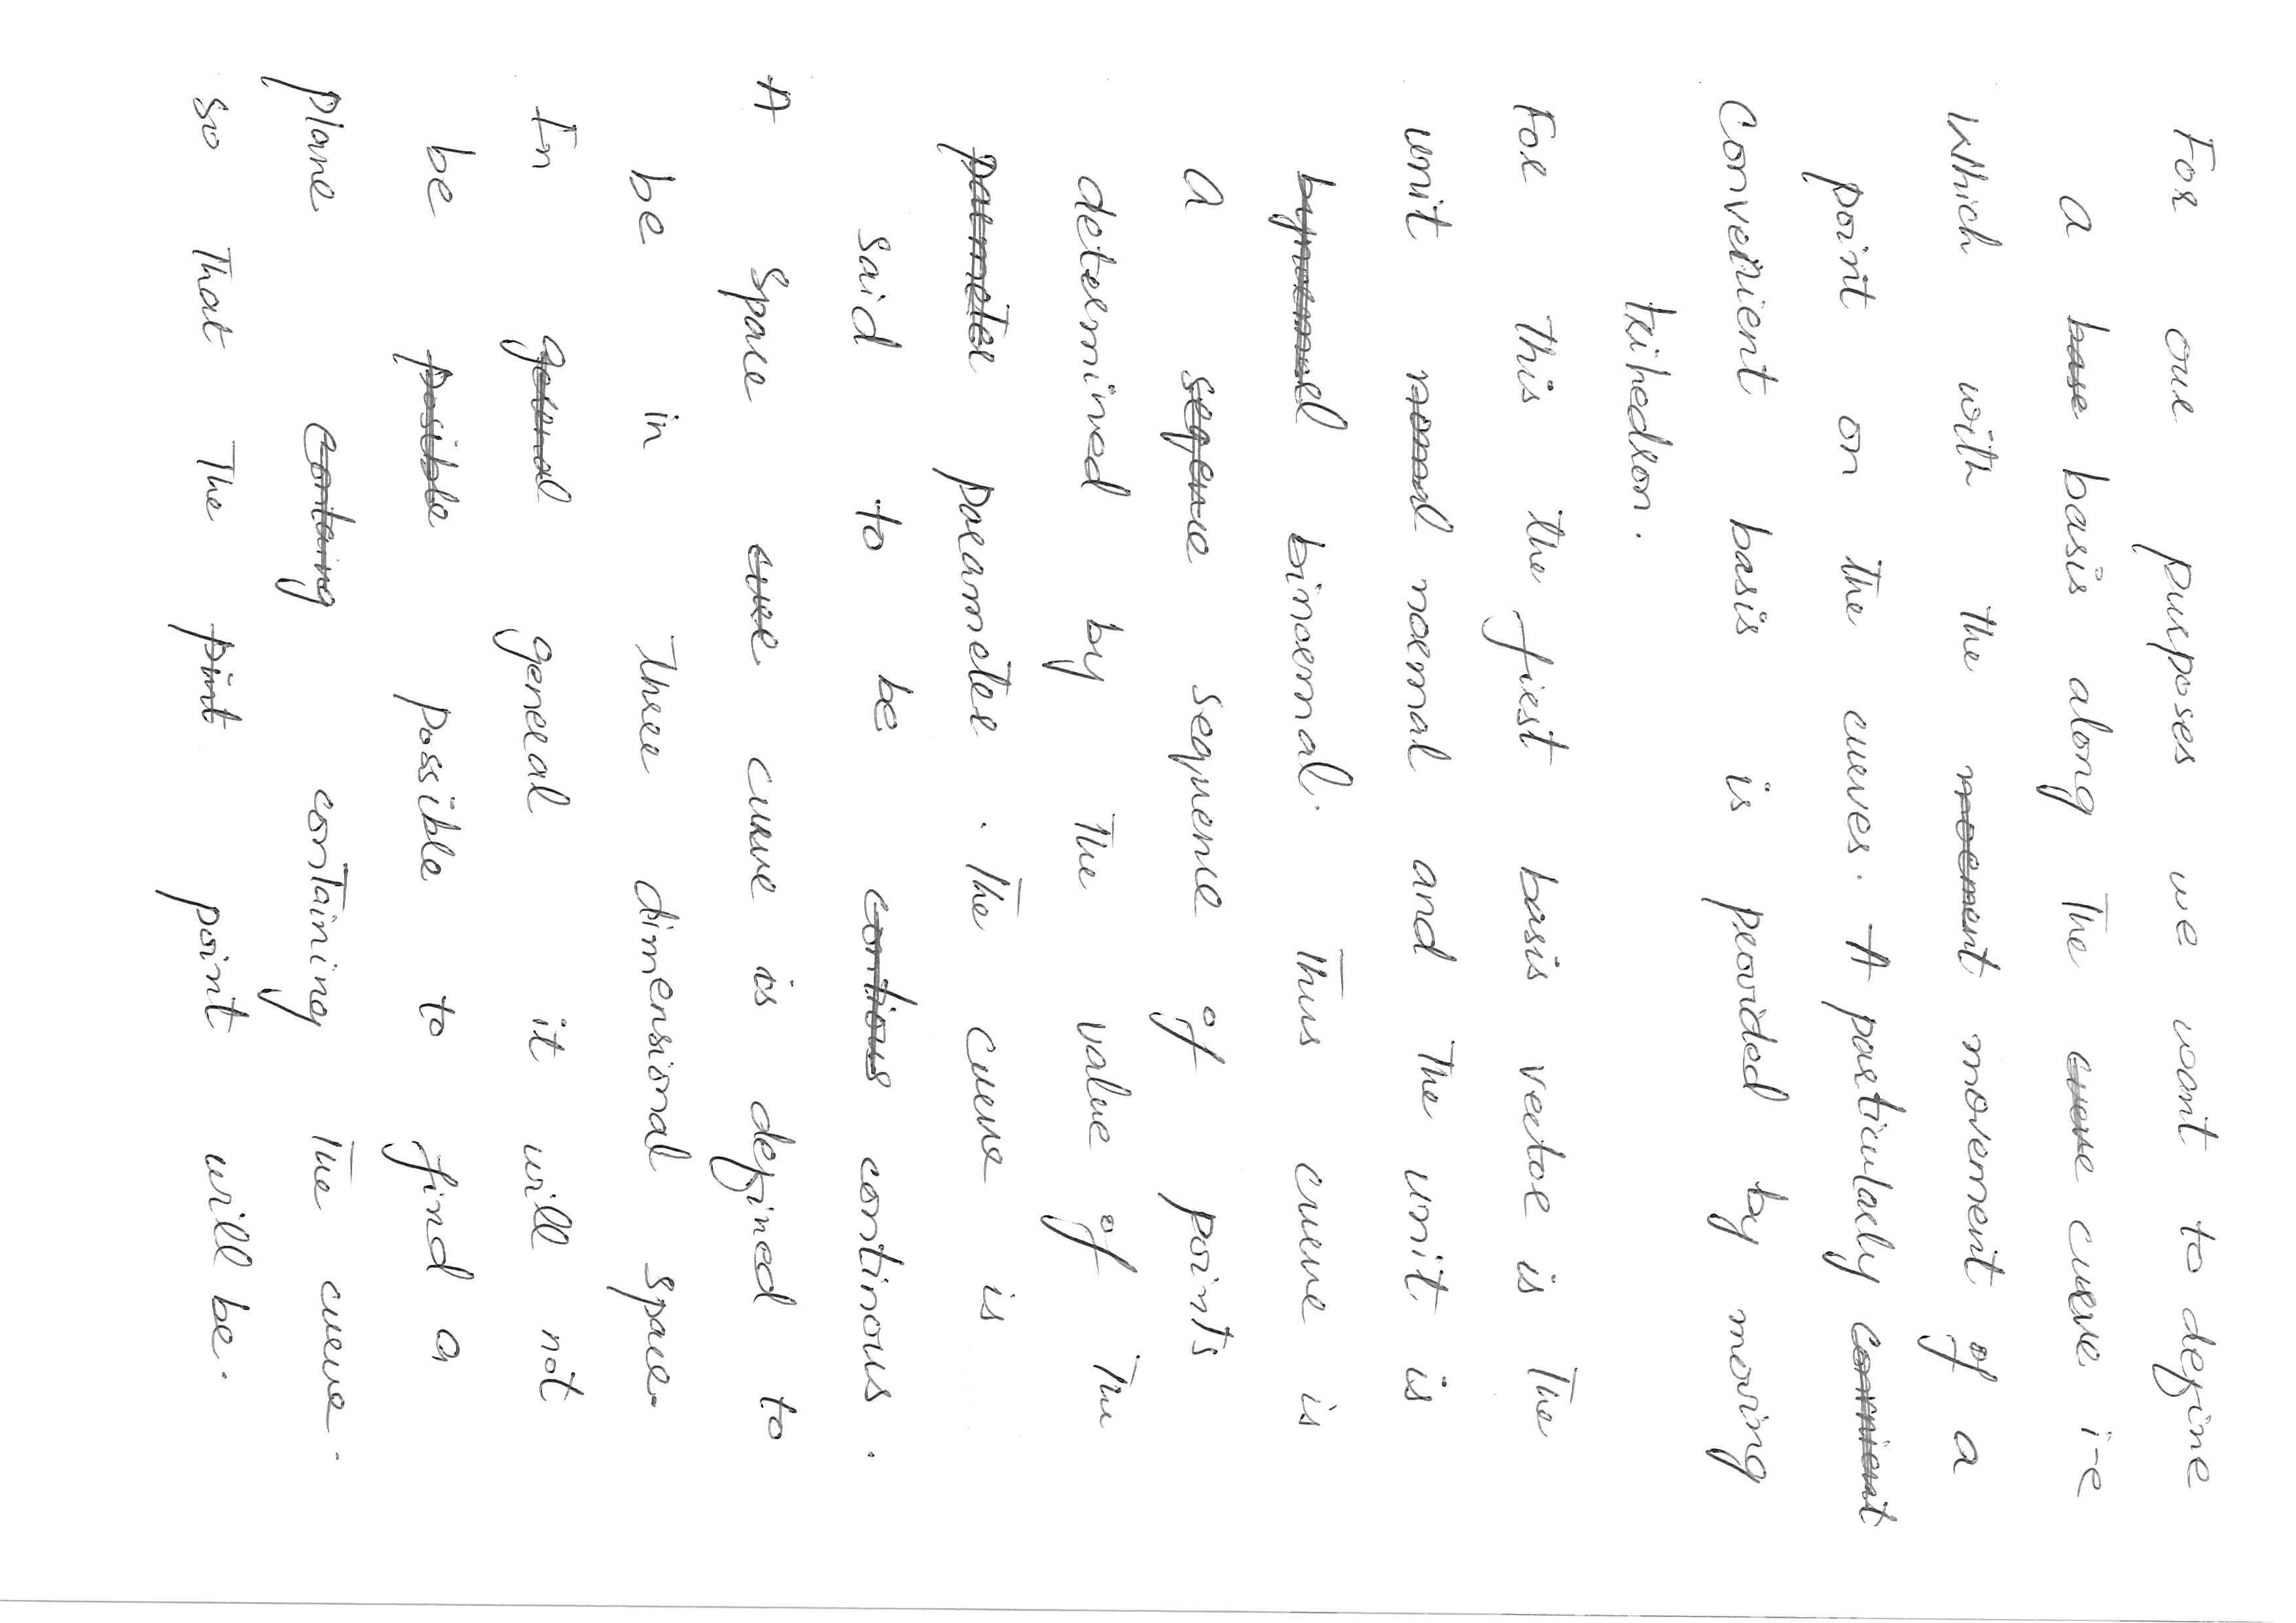 For our purposes we want to define
a ~~base~~ basis along The ~~curve~~ curve i-e
Which with the ~~moement~~ movement of a
point on the curves. A particularly ~~convnient~~
Convenient basis is provided by moving
trihedron.
For This the first basis vector is The
unit ~~nomal~~ normal and The unit is
~~bynormal~~ binormal. Thus curve is
a ~~seqence~~ sequence of points
determined by The value of The
~~parmeter~~ parameter. The curve is
said to be ~~contious~~ continous.
A Space ~~cuve~~ curve is defined to
be in Three dimensional space.
In ~~gerenal~~ general it will not
be ~~posible~~ possible to find a
plane ~~containg~~ containing The curve.
so That The ~~pint~~ point will be.